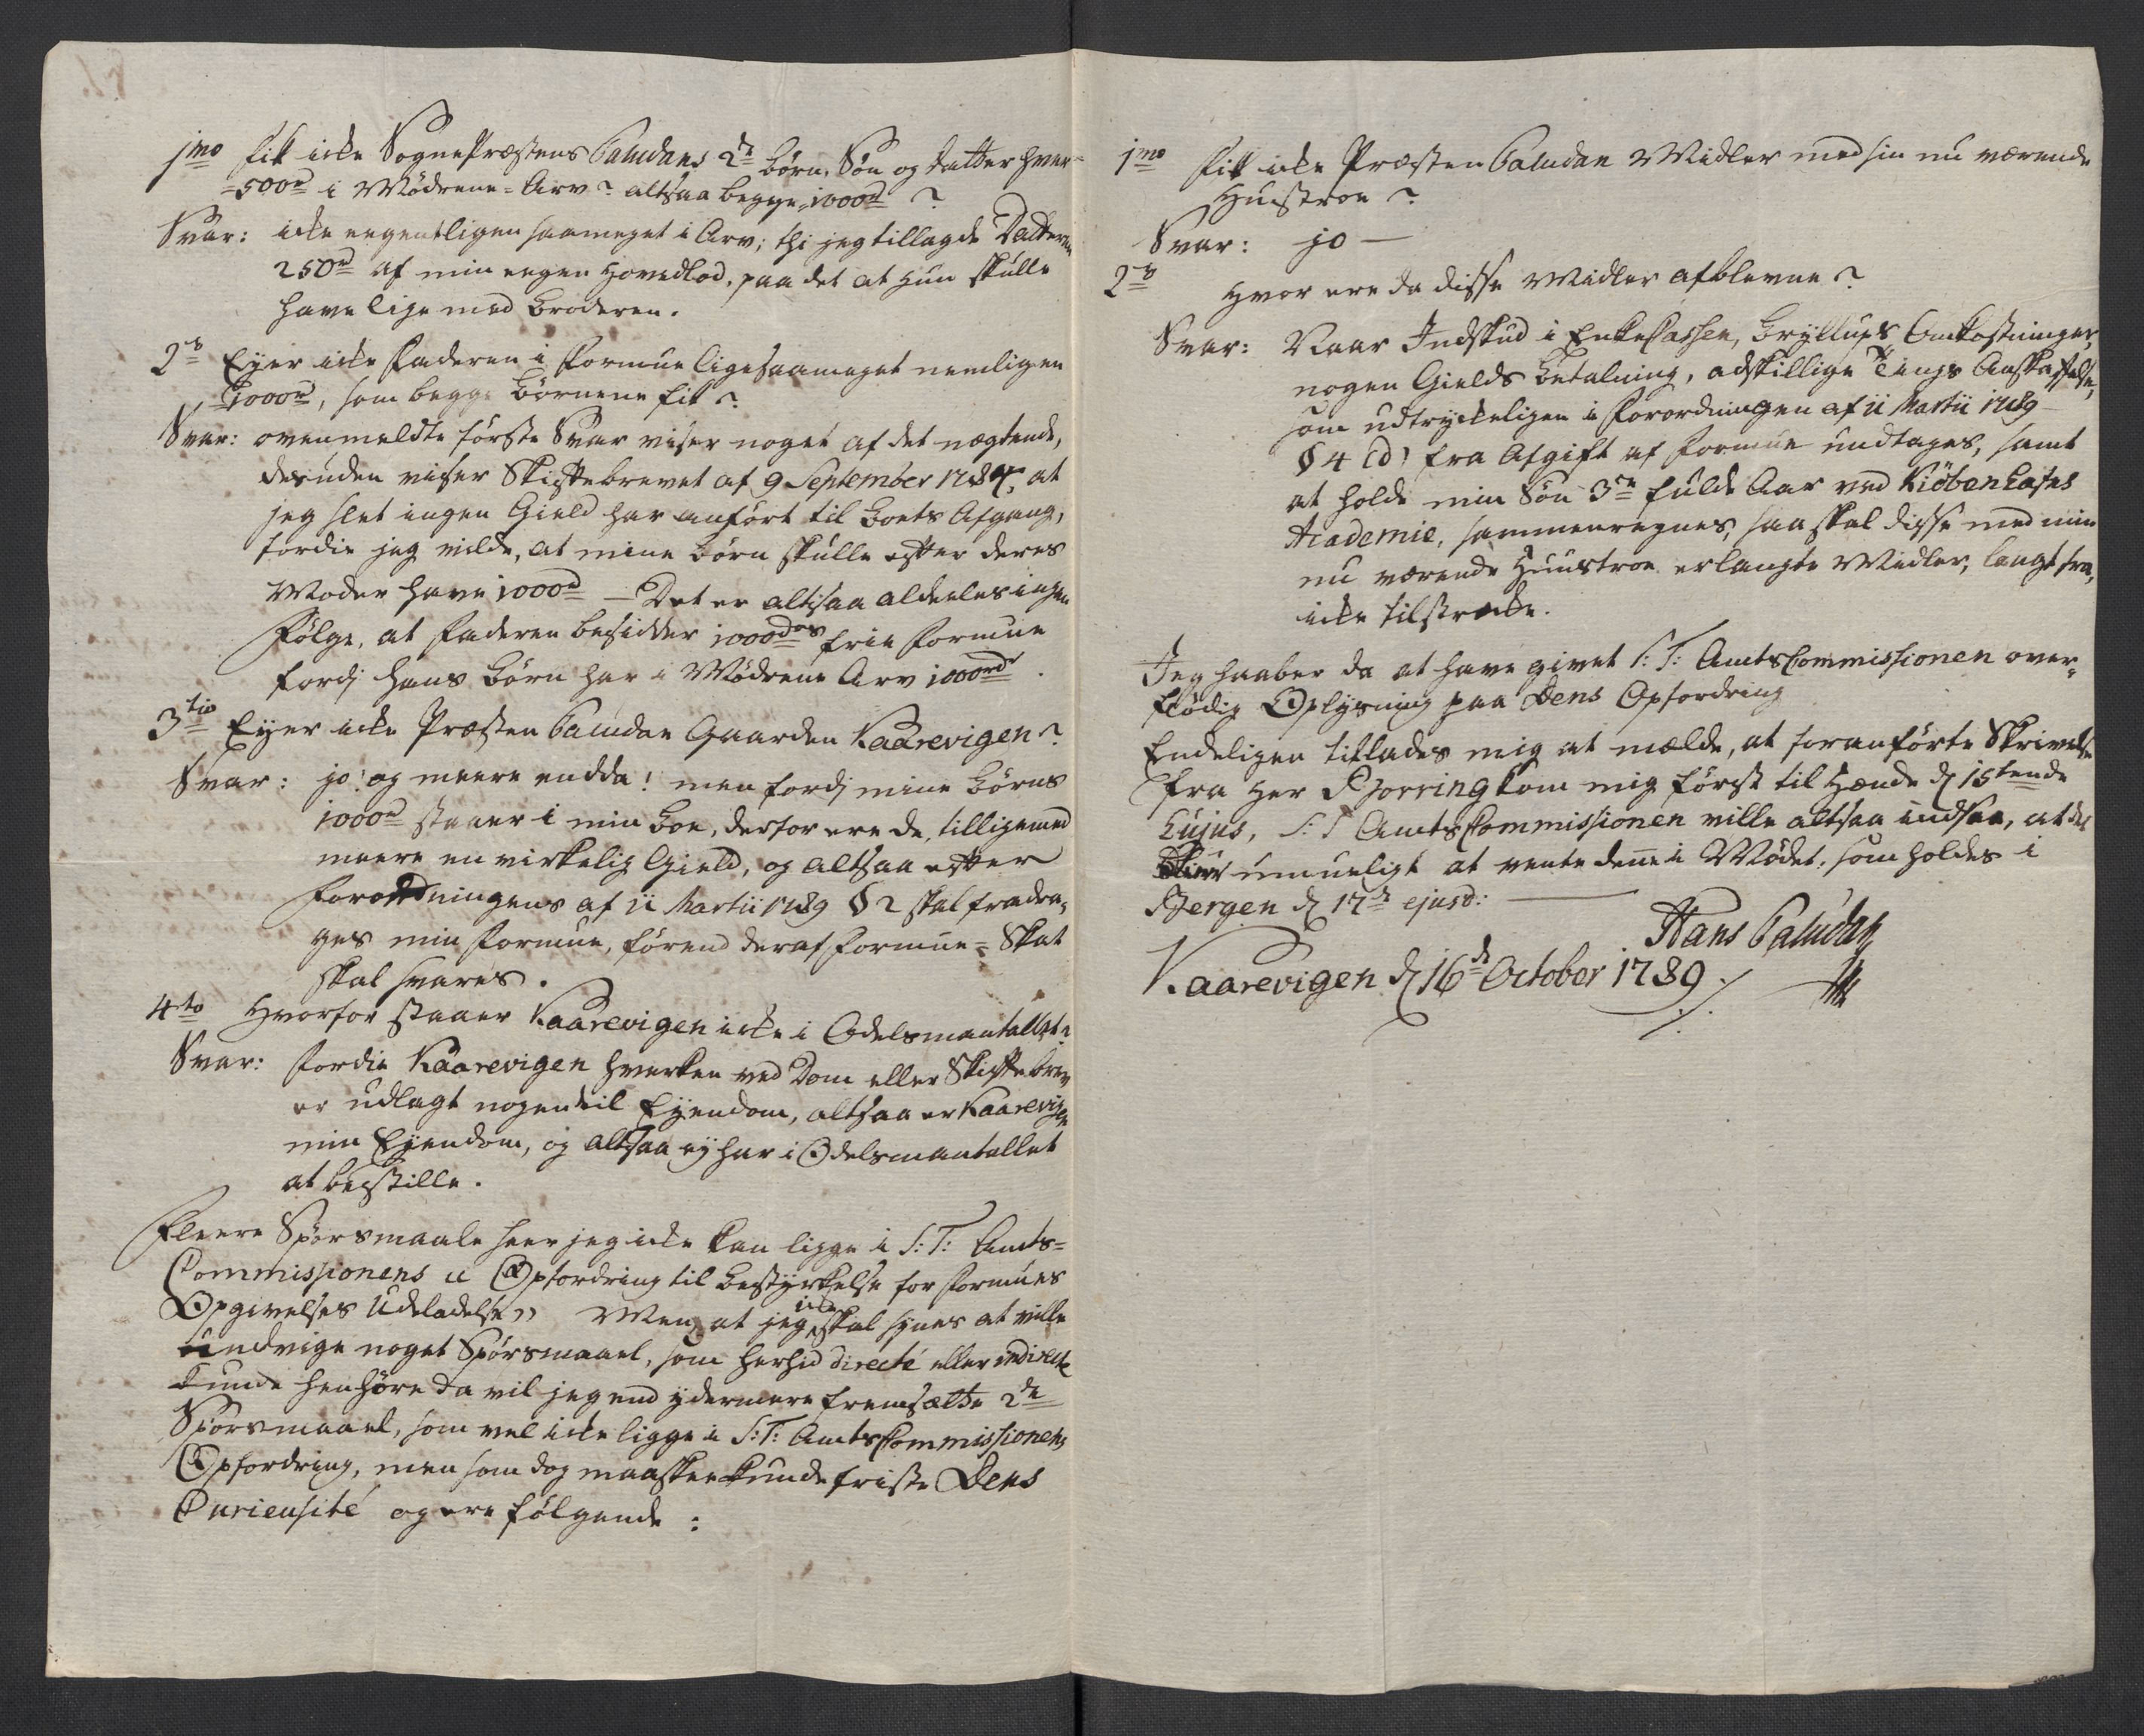 1mo fik icke SognePræstens Paludans 2de børn, Søn og datter hver
500rd i Mødrene-Arv? altsaa begge 1000rd?
Svar: icke eegentligen saameget i Arv; thi jeg tillagde Datteren
250rd af min eegen Hovedlod, paa det at hun skulle
have lige med Broderen.
2do Eyer icke Faderen i Formue ligesaameget nemligen
1000rd, som begge Børnene fik?
Svar: ovenmeldte første Svar viser noget af det nægtende,
desuden viser Skiftebrevet af 9 September 1784, at
jeg slet ingen Gield har anført til Boets Afgang,
fordie jeg vilde, at mine børn skulle efter deres
Moder have 1000rd – Det er altsaa aldeeles ingen
Følge, at Faderen besidder 1000rdrs frie Formue
fordj hans Børn har i Mødrene Arv 1000rdr.
3tio Eyer icke Præsten Paludan Gaarden Kaarevigen?
Svar: jo! og meere endda! men fordj mine Børns
1000rd staaer i min Boe, derfor ere de, tilligemed
meere en virkelig Gield, og altsaa efter
Forordningens af 11 Martii 1789 § 2 skal fradra-
ges min Formue, førend deraf Formue-Skat
skal svares.
4to Hvorfor staaer Kaarevigen icke i Odelsmantallet?
Svar: fordie Kaarevigen hverken ved Dom eller Skiftebrev
er udlagt nogen til Eyendom, altsaa er Kaarevigen
min Eyendom, og altsaa ey har i Odelsmantallet
at bestille.
Fleere Spørsmaale seer jeg icke kan ligge i S: T: Amts-
Commissionens „ Opfordring til bestyrkelse for Formues
Opgivelses Udeladelse „ Men, at jeg icke skal synes at ville
undvige noget Spørsmaael, som herhid directé eller indirecte
kunde henhøre da vil jeg end ydermere fremsætte 2de
Spørsmaael, som vel icke ligge i S: T: AmtsCommissionens
Opfordring, men som dog maaskee kunde friste Dens
Curieusité og ere følgende:
1mo Fik icke Præsten Paludan Midler med sin nu værende
Hustroe?
Svar: jo —
2do Hvor ere da disse Midler afblevne?
Svar: Naar Indskud i EnkeCassen, Bryllups Omkostninger,
nogen Gields betalning, adskillige Tings Anskaffelse,
som udtryckeligen i Forordningen af 11 Martii 1789
§ 4 (d) fra Afgift af Formue undtages, samt
at holde min Søn 3re fulde Aar ved Kiøbenhafns
Academie, sammenregnes, saa skal disse med min
nu værende Huustroe erlangte Midler, langt fra,
icke tilstrecke.
Jeg haaber da at have givet S: T: AmtsCommissionen over-
flødig Oplysning paa Dens Opfordring
Endeligen tillades mig at mælde, at foranførte Skrivelse
fra Her Bjorring kom mig først til Hænde d 15tende
hujus, S: T AmtsCommissionen ville altsaa indsee, at det
umueligt at vente denne i Mødet, som holdes i
Bergen d 17de ejusd: —
Hans Paludan
Kaarevigen d 16de October 1789.